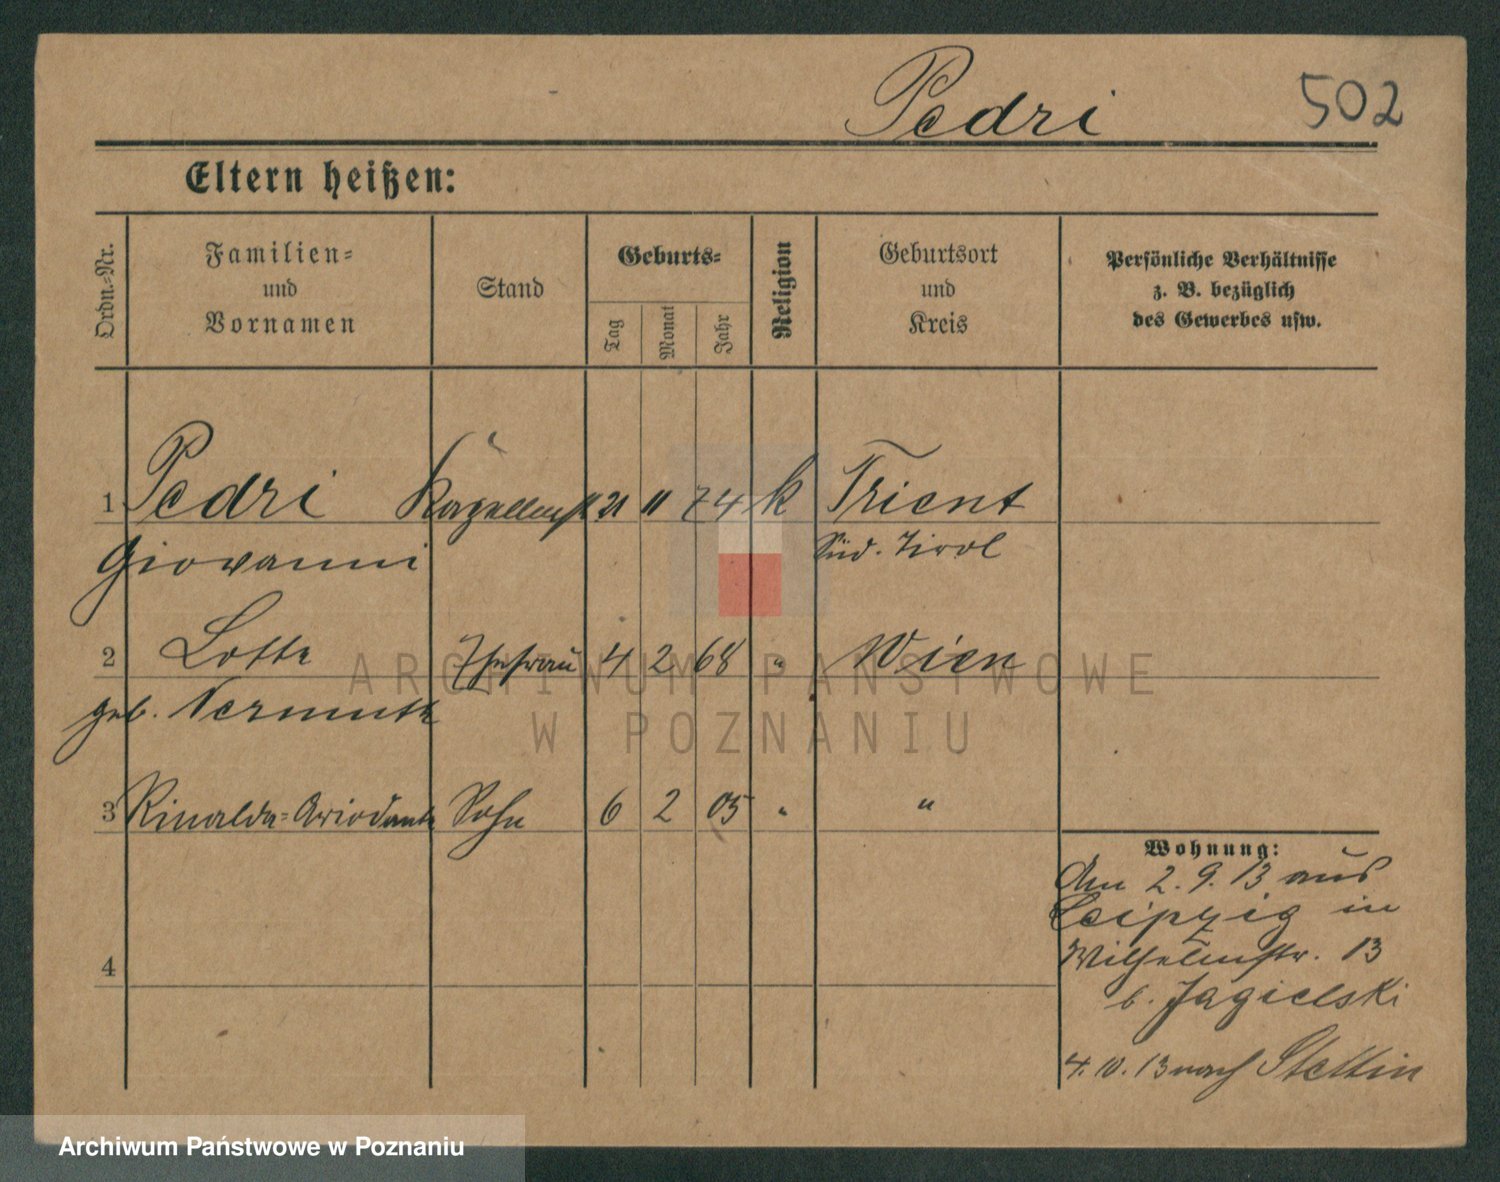 Pedri 502
Eltern heißen:
Ordn.-Nr.
Familien-
und
Vornamen
Stand
Geburts-
Tag
Monat
Jahr
Religion
Geburtsort
und
Kreis
Persönliche Verhältnisse
z. B. bezüglich
des Gewerbes usw.
1 Pedri Kapellmstr 21 11 74 k Trient
Giovanni Süd-Tirol
2 Lotte Ehefrau 4 2 68 " Wien
geb. Vermuth
3 Rinalda-Ariodante Sohn 6 2 05 " "
4
Wohnung:
Am 2. 9. 13 aus
Leipzig in
Wilhelmstr. 13
b. Jagielski
4. 10. 13 nach Stettin
ARCHIWUM PAŃSTWOWE
W POZNANIU
Archiwum Państwowe w Poznaniu